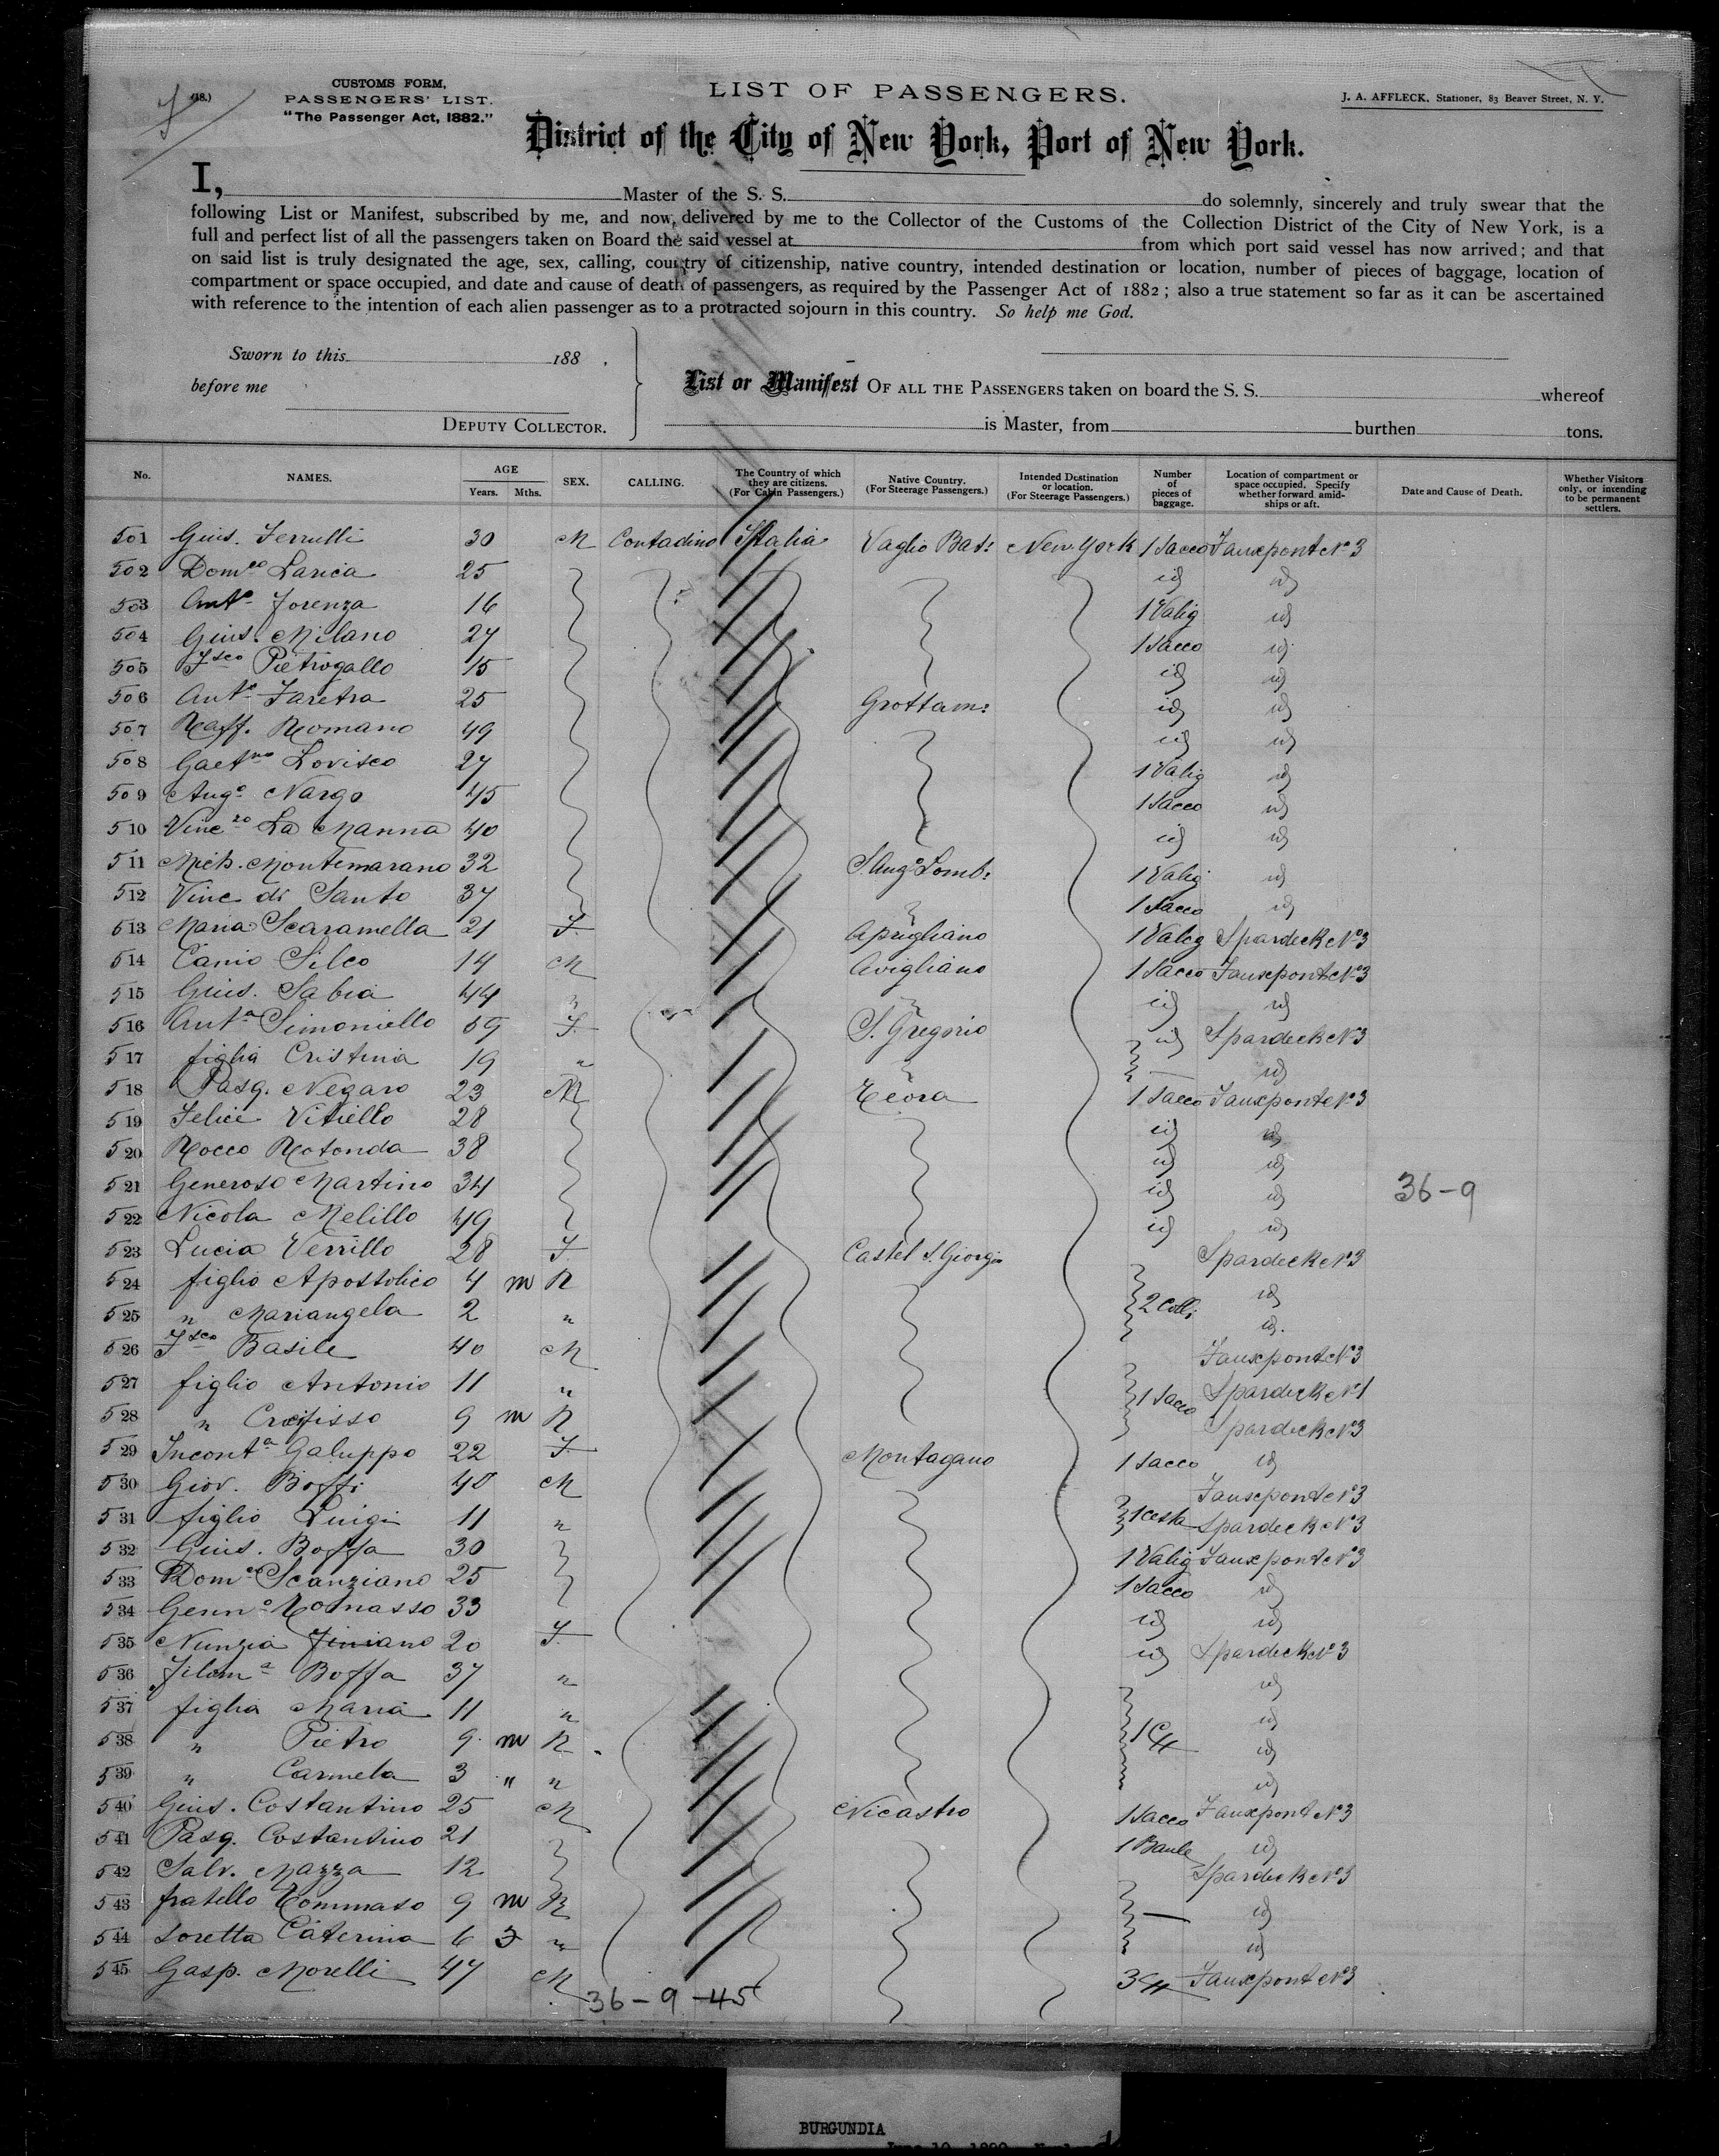 (18.)
CUSTOMS FORM,
PASSENGERS' LIST.
"The Passenger Act, 1882."
LIST OF PASSENGERS.
J. A. AFFLECK, Stationer, 83 Beaver Street, N. Y.
District of the City of New York, Port of New York.
I, Master of the S. S. do solemnly, sincerely and truly swear that the
following List or Manifest, subscribed by me, and now delivered by me to the Collector of the Customs of the Collection District of the City of New York, is a
full and perfect list of all the passengers taken on Board the said vessel at from which port said vessel has now arrived; and that
on said list is truly designated the age, sex, calling, country of citizenship, native country, intended destination or location, number of pieces of baggage, location of
compartment or space occupied, and date and cause of death of passengers, as required by the Passenger Act of 1882; also a true statement so far as it can be ascertained
with reference to the intention of each alien passenger as to a protracted sojourn in this country. So help me God.
Sworn to this 188 .
before me
DEPUTY COLLECTOR.
List or Manifest OF ALL THE PASSENGERS taken on board the S. S. whereof
is Master, from burthen tons.
No. NAMES. AGE Years. Mths. SEX. CALLING. The Country of which they are citizens. (For Cabin Passengers.) Native Country. (For Steerage Passengers.) Intended Destination or location. (For Steerage Passengers.) Number of pieces of baggage. Location of compartment or space occupied. Specify whether forward amidships or aft. Date and Cause of Death. Whether Visitors only, or intending to be permanent settlers.
501 Gius. Ferrulli 30 M Contadino Italia Vaglio Bas: New York 1 Sacco Fauxpont N°3
502 Dom.co Larica 25 id id
503 Ant.o Forenza 16 1 Valig id
504 Gius. Milano 27 1 Sacco id
505 F.sco Pietrogallo 15 id id
506 Ant.o Faretra 25 Grottam: id id
507 Raff. Romano 49 id id
508 Gaet.no Lovisco 27 1 Valig id
509 Ang.o Nargo 45 1 Sacco id
510 Vinc.zo La Manna 40 id id
511 Mich. Montemarano 32 S. Ang.o Lomb: 1 Valig id
512 Vinc di Santo 37 1 Sacco id
513 Maria Scaramella 21 F Aprigliano 1 Valig Spardeck N°3
514 Canio Sileo 14 M Avigliano 1 Sacco Fauxpont N°3
515 Gius. Sabia 44 id id
516 Ant.a Simoniello 59 F S. Gregorio id Spardeck N°3
517 figlia Cristina 19 " — id
518 Pasq. Negaro 23 M Teora 1 Sacco Fauxpont N°3
519 Felice Vitiello 28 id id
520 Rocco Rotonda 38 id id
521 Generoso Martino 34 id id 36-9
522 Nicola Melillo 49 id id
523 Lucia Verrillo 28 F Castel S. Giorgio Spardeck N°3
524 figlio Apostolico 4 m R 2 Colli id
525 " Mariangela 2 " id.
526 F.sco Basile 40 M Fauxpont N°3
527 figlio Antonio 11 " 1 Sacco Spardeck N°1
528 " Crocifisso 9 m R Spardeck N°3
529 Incont.a Galuppo 22 F Montagano 1 Sacco id
530 Giov. Boffi 40 M Fauxpont N°3
531 figlio Luigi 11 " 1 Cesta Spardeck N°3
532 Gius. Boffa 30 1 Valig Fauxpont N°3
533 Dom.co Scanziano 25 1 Sacco id
534 Genn.o Tomasso 33 id id
535 Nunzia Finiano 20 F id Spardeck N°3
536 Filom.a Boffa 37 " id
537 figlia Maria 11 " id
538 " Pietro 9 m R id
539 " Carmela 3 " " id
540 Gius. Costantino 25 M Nicastro 1 Sacco Fauxpont N°3
541 Pasq. Costantino 21 1 Baule id
542 Salv. Mazza 12 Spardeck N°3
543 fratello Tommaso 9 m R — id
544 soretta Caterina 6 " id
545 Gasp. Morelli 47 M Fauxpont N°3
36-9-45
BURGUNDIA